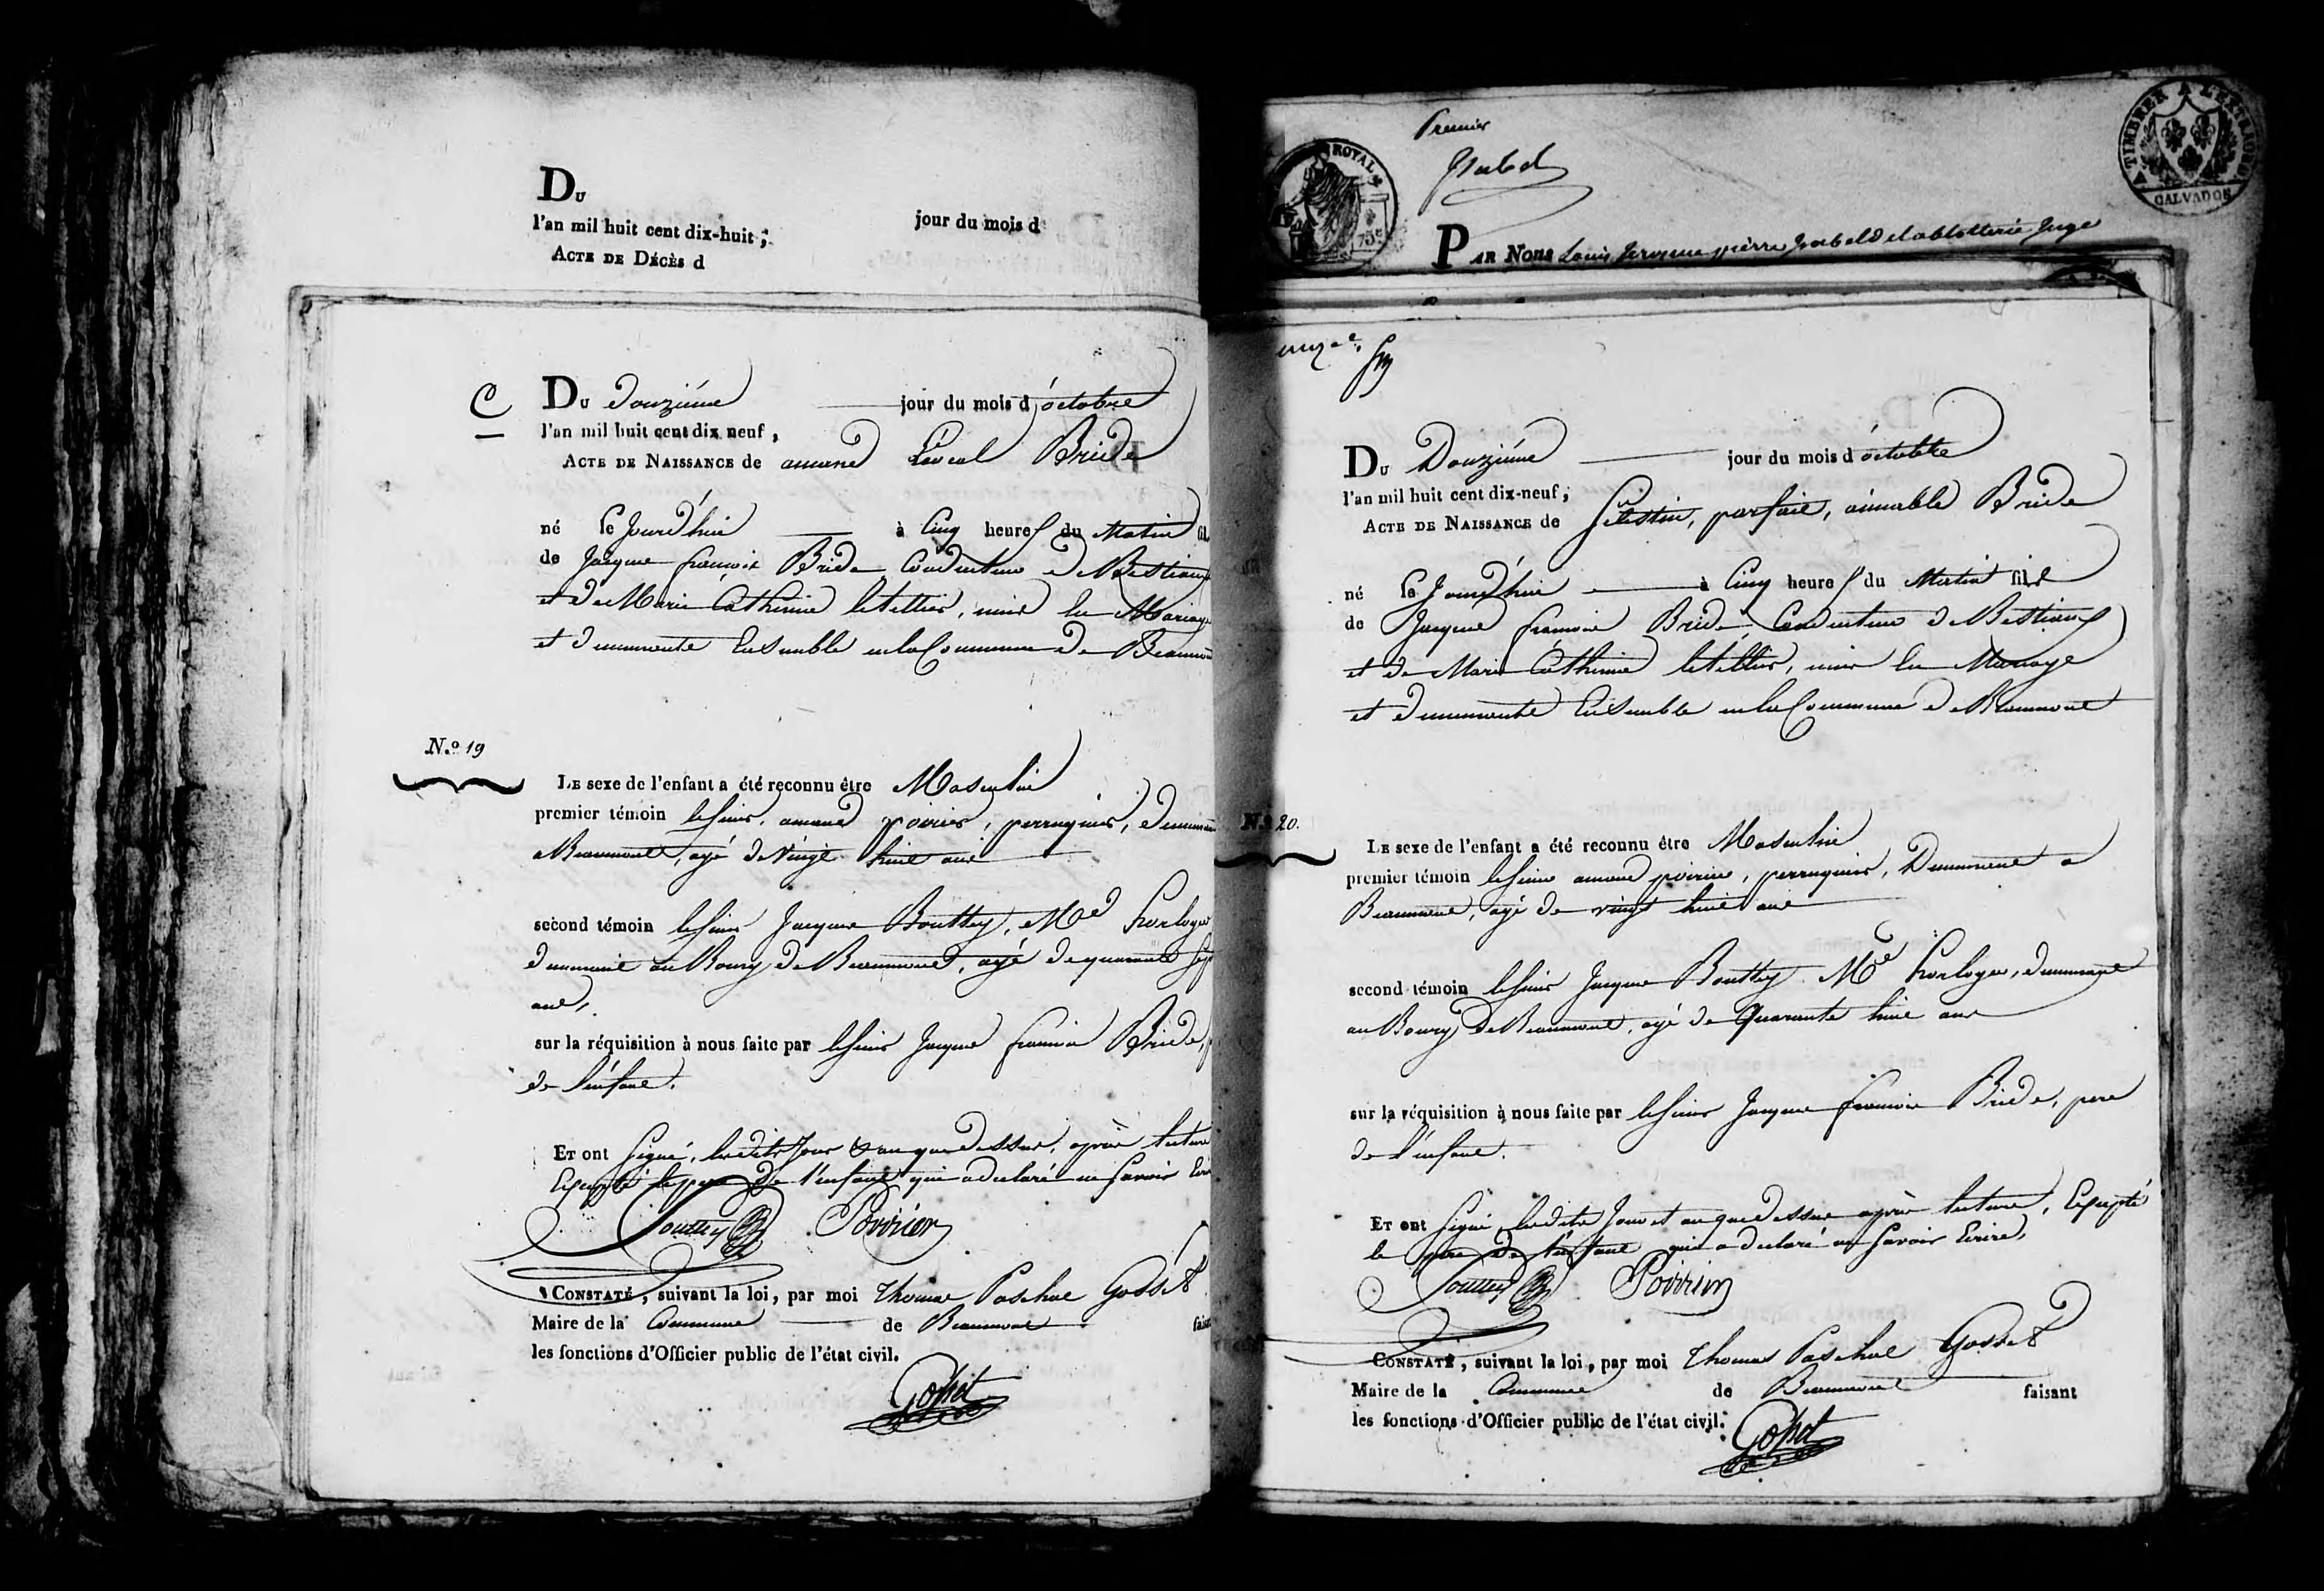 Du
l'an mil huit cent dix-huit ; jour du mois d
ACTE DE DÉCÈS d
C
Du douziéme jour du mois d'octobre
l'an mil huit cent dix neuf,
ACTE DE NAISSANCE de amand Bride
né Ce Jourd'hui à Cinq heures du Matin fil
de Jacque francois Bride Conducteur de Bestiaux
et de Marie Catherine letellier, unis en Mariage
et demeurants Ensemble en la Commune de Beaumon
N.º 19
LE sexe de l'enfant a été reconnu être Masculin
premier témoin le sieur amand poirier, perruquier, demeuran
a Beaumont, agé de vingt huit ans
second témoin le sieur Jacque Bouttey, Md horloger
demeurant au Bourg de Beaumont, agé de quarante
ans,
sur la réquisition à nous faite par le sieur Jacque francois Bride,
de l'enfant.
ET ont signé, lesdits Jour & an que dessus, après lecture
Excepté le pere de l'enfant qui a declaré ne savoir Ecri
Bouttey Poirrier
CONSTATÉ, suivant la loi, par moi Thomas Paschal Gosset
Maire de la Commune de Beaumont fais
les fonctions d'Officier public de l'état civil.
Gosset
Premier
ROYAL
75c
TIMBRER A L'EXTRAORD
CALVADOS
PAR Nous Louis pierre Juge
Du Douziéme jour du mois d'octobre
l'an mil huit cent dix-neuf ;
ACTE DE NAISSANCE de Célestin, parfait, aimable Bride
né Ce Jourd'hui à Cinq heures du Matin fils
de Jacque francois Bride Conducteur de Bestiaux
et de Marie Catherine letellier, unis en Mariage
et demeurants Ensemble en la Commune de Beaumont
N.º 20.
LE sexe de l'enfant a été reconnu être Masculin
premier témoin le sieur amand poirier, perruquier, Demeurant a
Beaumont, agé de vingt huit ans
second témoin le sieur Jacque Bouttey Md horloger, demeurant
au Bourg de Beaumont, agé de Quarante huit ans
sur la réquisition à nous faite par le sieur Jacque francois Bride, pere
de l'enfant.
ET ont signé, lesdits Jour et an que dessus après lecture, Excepté
le pere de l'enfant qui a declaré ne savoir Ecrire,
Bouttey Poirrier
CONSTATÉ, suivant la loi, par moi Thomas Paschal Gosset
Maire de la Commune de Beaumont faisant
les fonctions d'Officier public de l'état civil.
Gosset